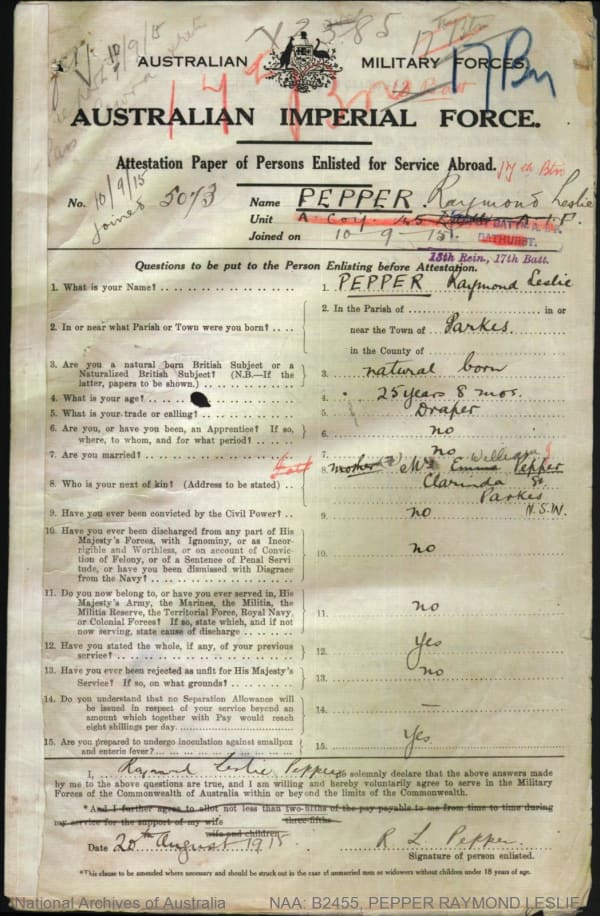 2385
17th Btn
17 Bn
10/9/15
AUSTRALIAN MILITARY FORCES.
AUSTRALIAN IMPERIAL FORCE.
Attestation Paper of Persons Enlisted for Service Abroad. 17th Btn
No. 5073 Name PEPPER. Raymond Leslie
10/9/15 Joined
Unit A Coy. 45
BATHURST.
Joined on 10 - 9 - 15.
13th Rein., 17th Batt.
Questions to be put to the Person Enlisting before Attestation.
1. What is your Name? 1. PEPPER Raymond Leslie
2. In or near what Parish or Town were you born? 2. In the Parish of in or
near the Town of Parkes
in the County of
3. Are you a natural born British Subject or a
Naturalized British Subject? (N.B.—If the
latter, papers to be shown.) 3. natural born
4. What is your age? 4. 25 years 8 mos.
5. What is your trade or calling? 5. Draper
6. Are you, or have you been, an Apprentice? If so,
where, to whom, and for what period? 6. no
7. Are you married? 7. no
8. Who is your next of kin? (Address to be stated) 8. mother Mr Emma William Pepper
Clarinda St
Parkes
N.S.W.
9. Have you ever been convicted by the Civil Power? 9. no
10. Have you ever been discharged from any part of His
Majesty's Forces, with Ignominy, or as Incor-
rigible and Worthless, or on account of Convic-
tion of Felony, or of a Sentence of Penal Servi-
tude, or have you been dismissed with Disgrace
from the Navy? 10. no
11. Do you now belong to, or have you ever served in, His
Majesty's Army, the Marines, the Militia, the
Militia Reserve, the Territorial Force, Royal Navy,
or Colonial Forces? If so, state which, and if not
now serving, state cause of discharge 11. no
12. Have you stated the whole, if any, of your previous
service? 12. yes
13. Have you ever been rejected as unfit for His Majesty's
Service? If so, on what grounds? 13. no
14. Do you understand that no Separation Allowance will
be issued in respect of your service beyond an
amount which together with Pay would reach
eight shillings per day. 14. —
15. Are you prepared to undergo inoculation against smallpox
and enteric fever? 15. Yes
I, Raymond Leslie Pepper do solemnly declare that the above answers made
by me to the above questions are true, and I am willing and hereby voluntarily agree to serve in the Military
Forces of the Commonwealth of Australia within or beyond the limits of the Commonwealth.
*And I further agree to allot not less than two-fifths of the pay payable to me from time to time during
three-fifths
my service for the support of my wife
wife and children.
Date 20th August 1915 R L Pepper.
Signature of person enlisted.
*This clause to be amended where necessary and should be struck out in the case of unmarried men or widowers without children under 18 years of age.
National Archives of Australia NAA: B2455, PEPPER RAYMOND LESLIE